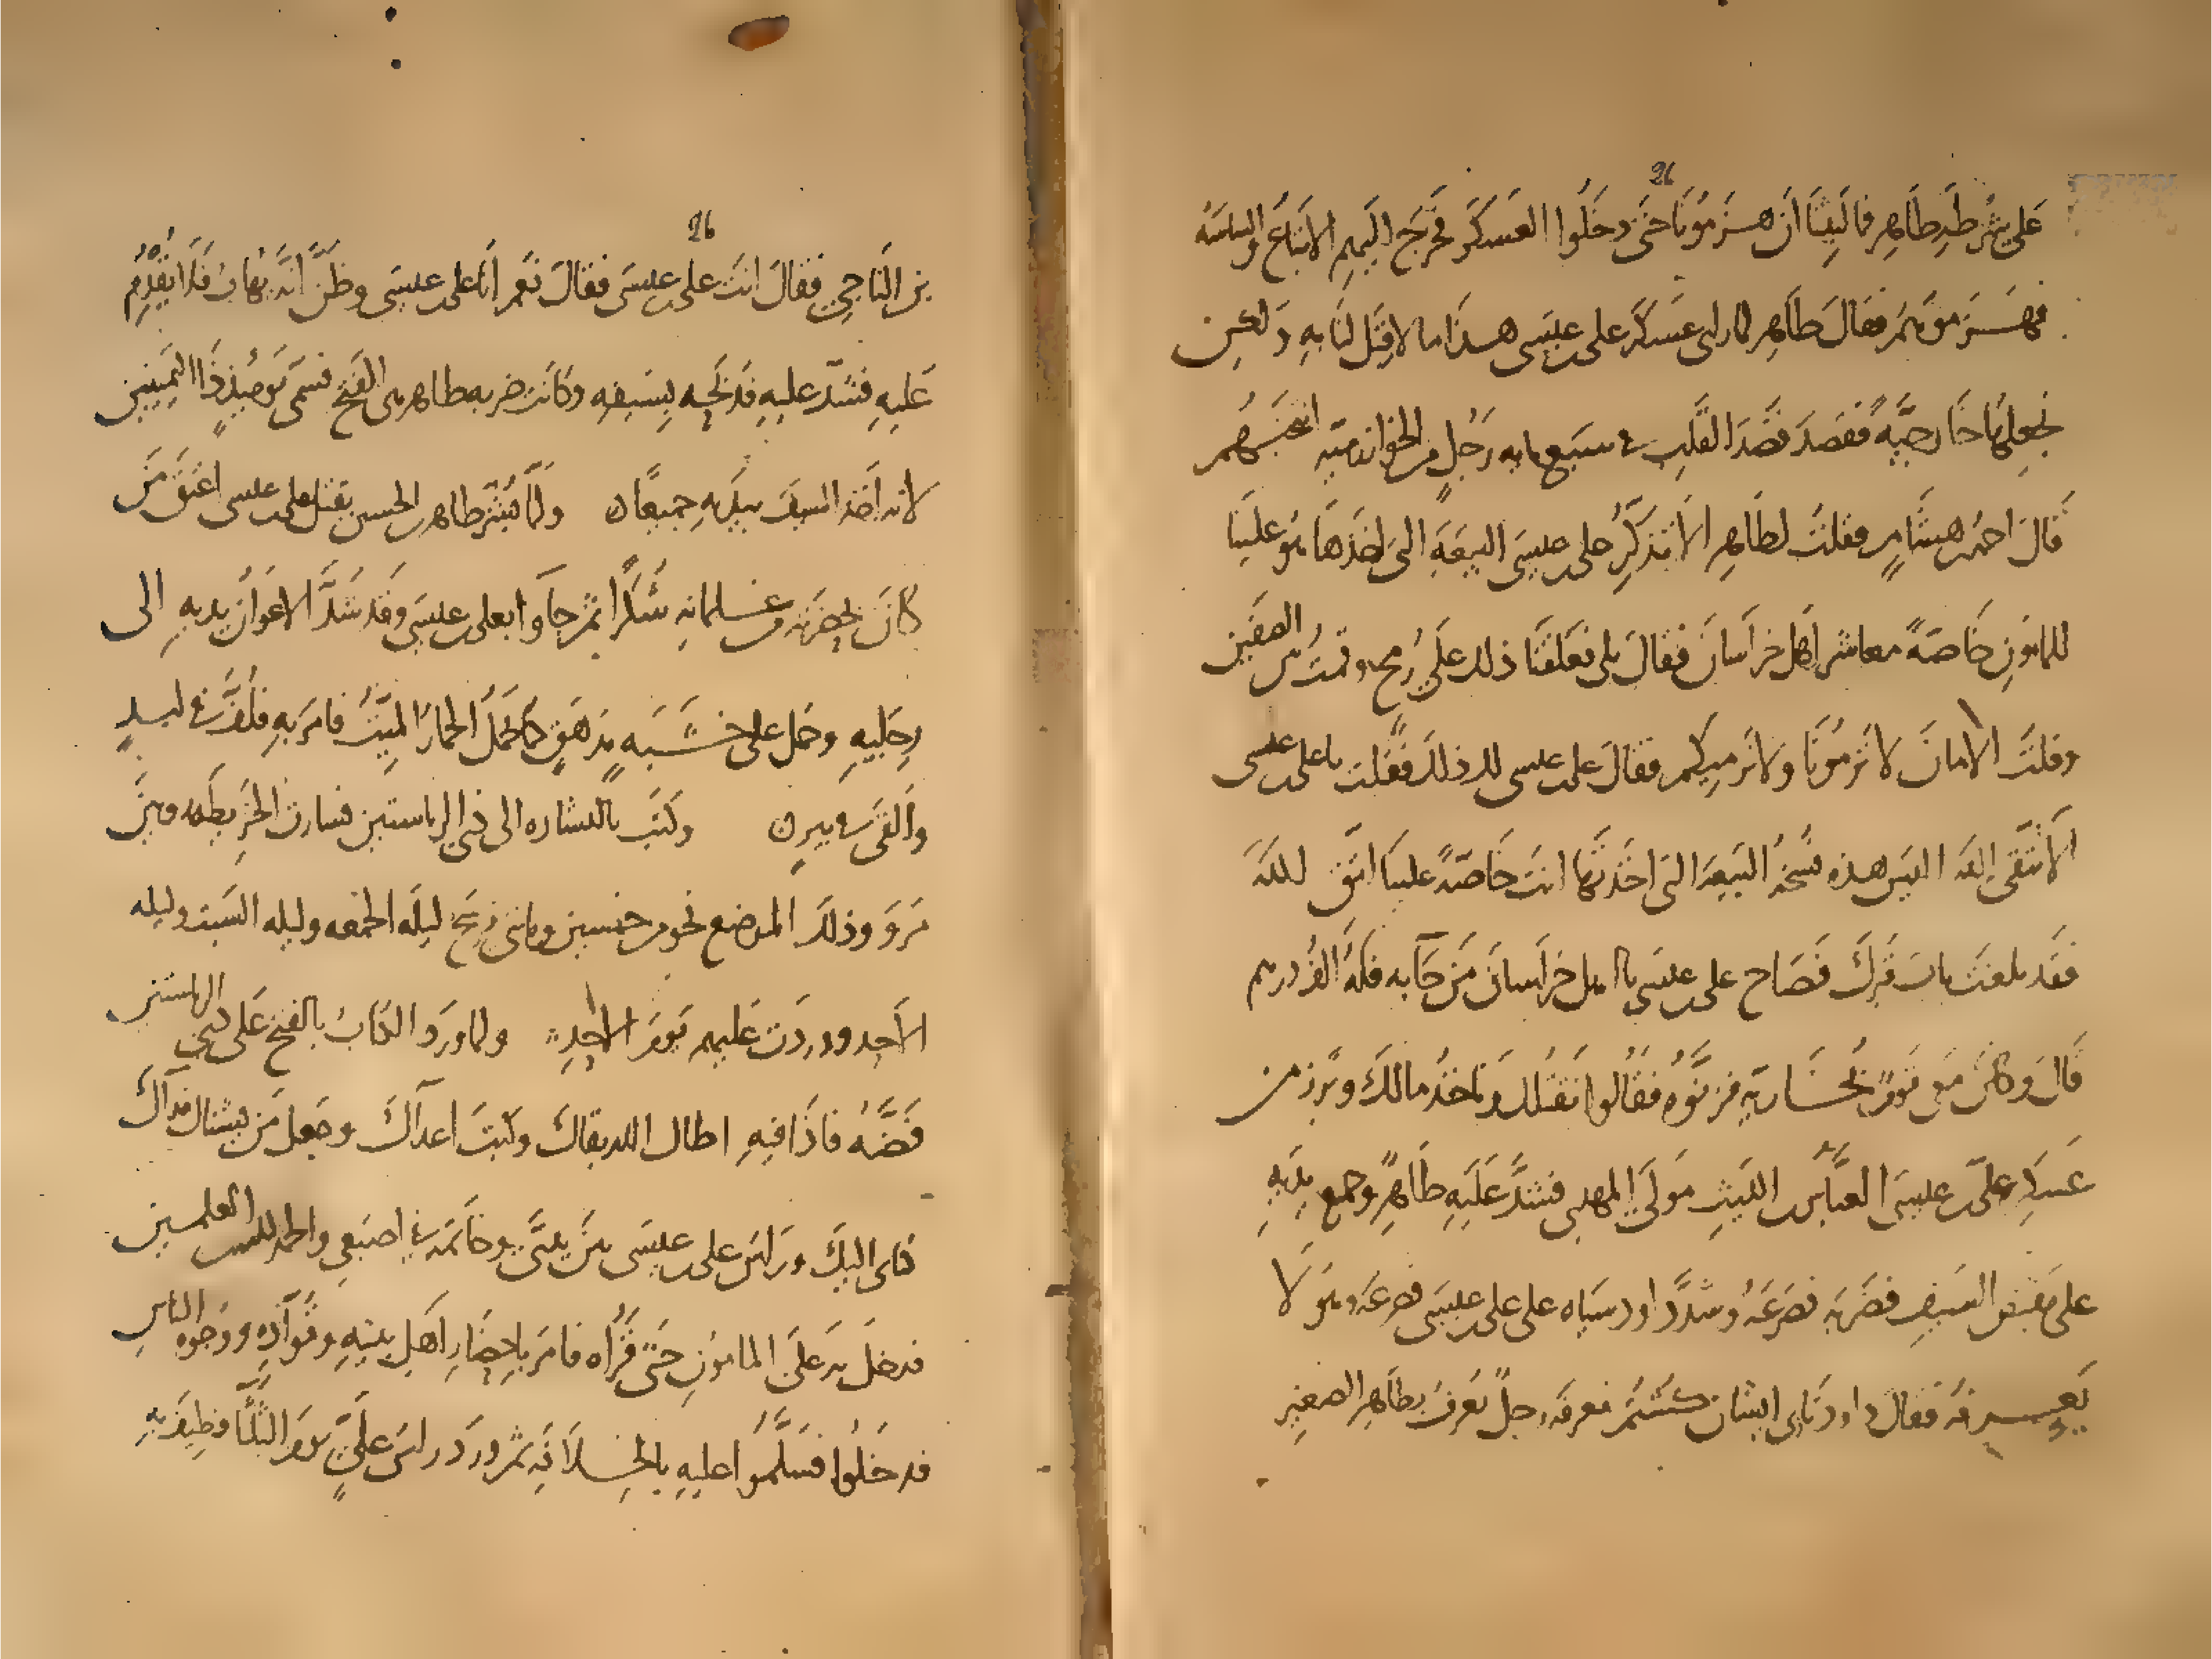 26
على شرطه طاهر فما لبثنا ان هزمونا حتى دخلوا العسكر فخرج اليهم الاتباع والساسه
فهزموهم فقال طاهر لما راى عسكر على بن عيسى هذا ما لا قبل لنا به ولكن
نجعلها خارجيّة فقصد قصد القلب في سبع مايه رجل من الخوارزميّه انتخبهم
قال احمد بن هشام فقلت لطاهر الا نذكر على بن عيسى البيعة التى اخذها هو علينا
للمامون خاصّة معاشر اهل خراسان فقال بلى فعلقنا ذلك على رمح وقمت بين الصفين
وقلت الامان لا ترمونا ولا نرميكم فقال على بن عيسى لك ذلك فقلت يا على بن عيسى
الا تتقى الله اليس هذه نسخة البيعة التى اخذتها انت خاصّة علينا اتق الله
فقد بلغت باب قبرك فصاح على بن عيسى يا اهل خراسان من جا به فله الف درهم
قال وكان معى قوم بخاريّه فزنّوه فقالوا نقتلك وناخذ مالك وبرز من
عسكر على بن عيسى العبّاس بن الليث مولى المهدى فشدّ عليه طاهر وجمع يديه
على مقبض السيف فضربه فصرعه وشدّ داود سياه على على بن عيسى فصرعه وهو لا
يعرفه فقال داود ناى ايشان كشتم فعرفه رجل يعرف بطاهر الصغير
26
بن الناجى فقال انت على بن عيسى فقال نعم انا على بن عيسى وظنّ انّه يهاب فلا يقدم
عليه فشدّ عليه فذبحه بسيفه وكانت ضربه طاهر هى الفتح فسمى يوميذ ذا اليمينين
لانه اخذ السيف بيديه جميعًا ولما بشر طاهر بن الحسين بقتل على بن عيسى اعتق من
كان بحضرته من غلمانه شكرًا ثم جاوا بعلى بن عيسى وقد شدّ الاعوان يديه الى
رجليه وحمل على خشبه مدهق كما يحمل الحمار الميّت فامر به فلفّ في لبد
والقى في بير وكتب بالبشاره الى ذى الرياستين فسارت الخريطه وبين
مرو وذلك الموضع نحو من خمسين ومايتى فرسخ ليلة الجمعه وليله السبت وليله
الاحد ووردت عليهم يوم الاحد ولما ورد الكتاب بالفتح على ذى الرياستين
فضّه فاذا فيه اطال الله بقاك وكبت اعداك وجعل من يشناك فداك
كتابى اليك وراس على بن عيسى بين يدىّ وخاتمه في اصبعى والحمد لله رب العلمين
فدخل به على المامون حتى قراه فامر باحضار اهل بيته وقوّاده ووجوه الناس
فدخلوا فسلّموا عليه بالخلافه ثم ورد راس علىّ يوم الثلثا فطيف به